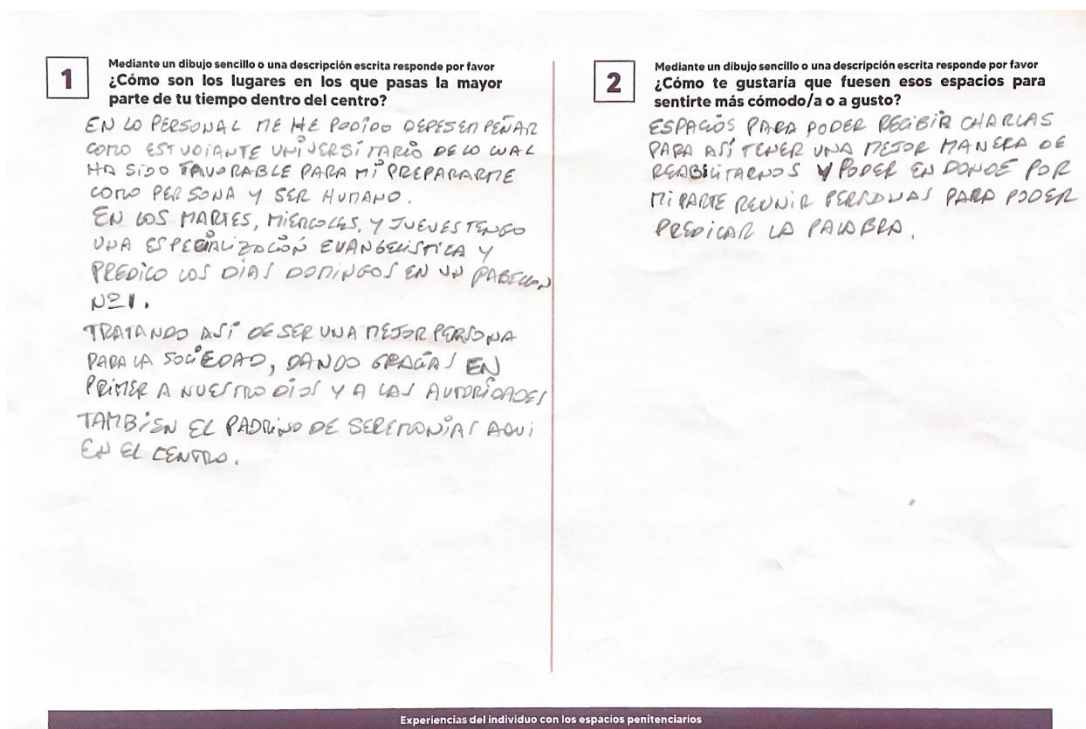 1
Mediante un dibujo sencillo o una descripción escrita responde por favor
¿Cómo son los lugares en los que pasas la mayor
parte de tu tiempo dentro del centro?
EN LO PERSONAL ME HE PODIDO DEPESEMPEÑAR
COMO ESTUDIANTE UNIVERSITARIO DE LO CUAL
HA SIDO FAVORABLE PARA MI PREPARARME
COMO PERSONA Y SER HUMANO.
EN LOS MARTES, MIERCOLES, Y JUEVES TENGO
UNA ESPECIALIZACIÓN EVANGELISTICA Y
PREDICO LOS DÍAS DOMINGOS EN UN PABELLON
Nº1.
TRATANDO ASÍ DE SER UNA MEJOR PERSONA
PARA LA SOCIEDAD, DANDO GRACIAS EN
PRIMER A NUESTRO DIOS Y A LAS AUTORIDADES
TAMBIÉN EL PADRINO DE SEREMONIAS AQUI
EN EL CENTRO.
2
Mediante un dibujo sencillo o una descripción escrita responde por favor
¿Cómo te gustaría que fuesen esos espacios para
sentirte más cómodo/a o a gusto?
ESPACIOS PARA PODER RECIBIR CHARLAS
PARA ASÍ TENER UNA MEJOR MANERA DE
REABILITARNOS Y PODER EN DONDE POR
MI PARTE REUNIR PERSONAS PARA PODER
PREDICAR LA PALABRA.
Experiencias del individuo con los espacios penitenciarios